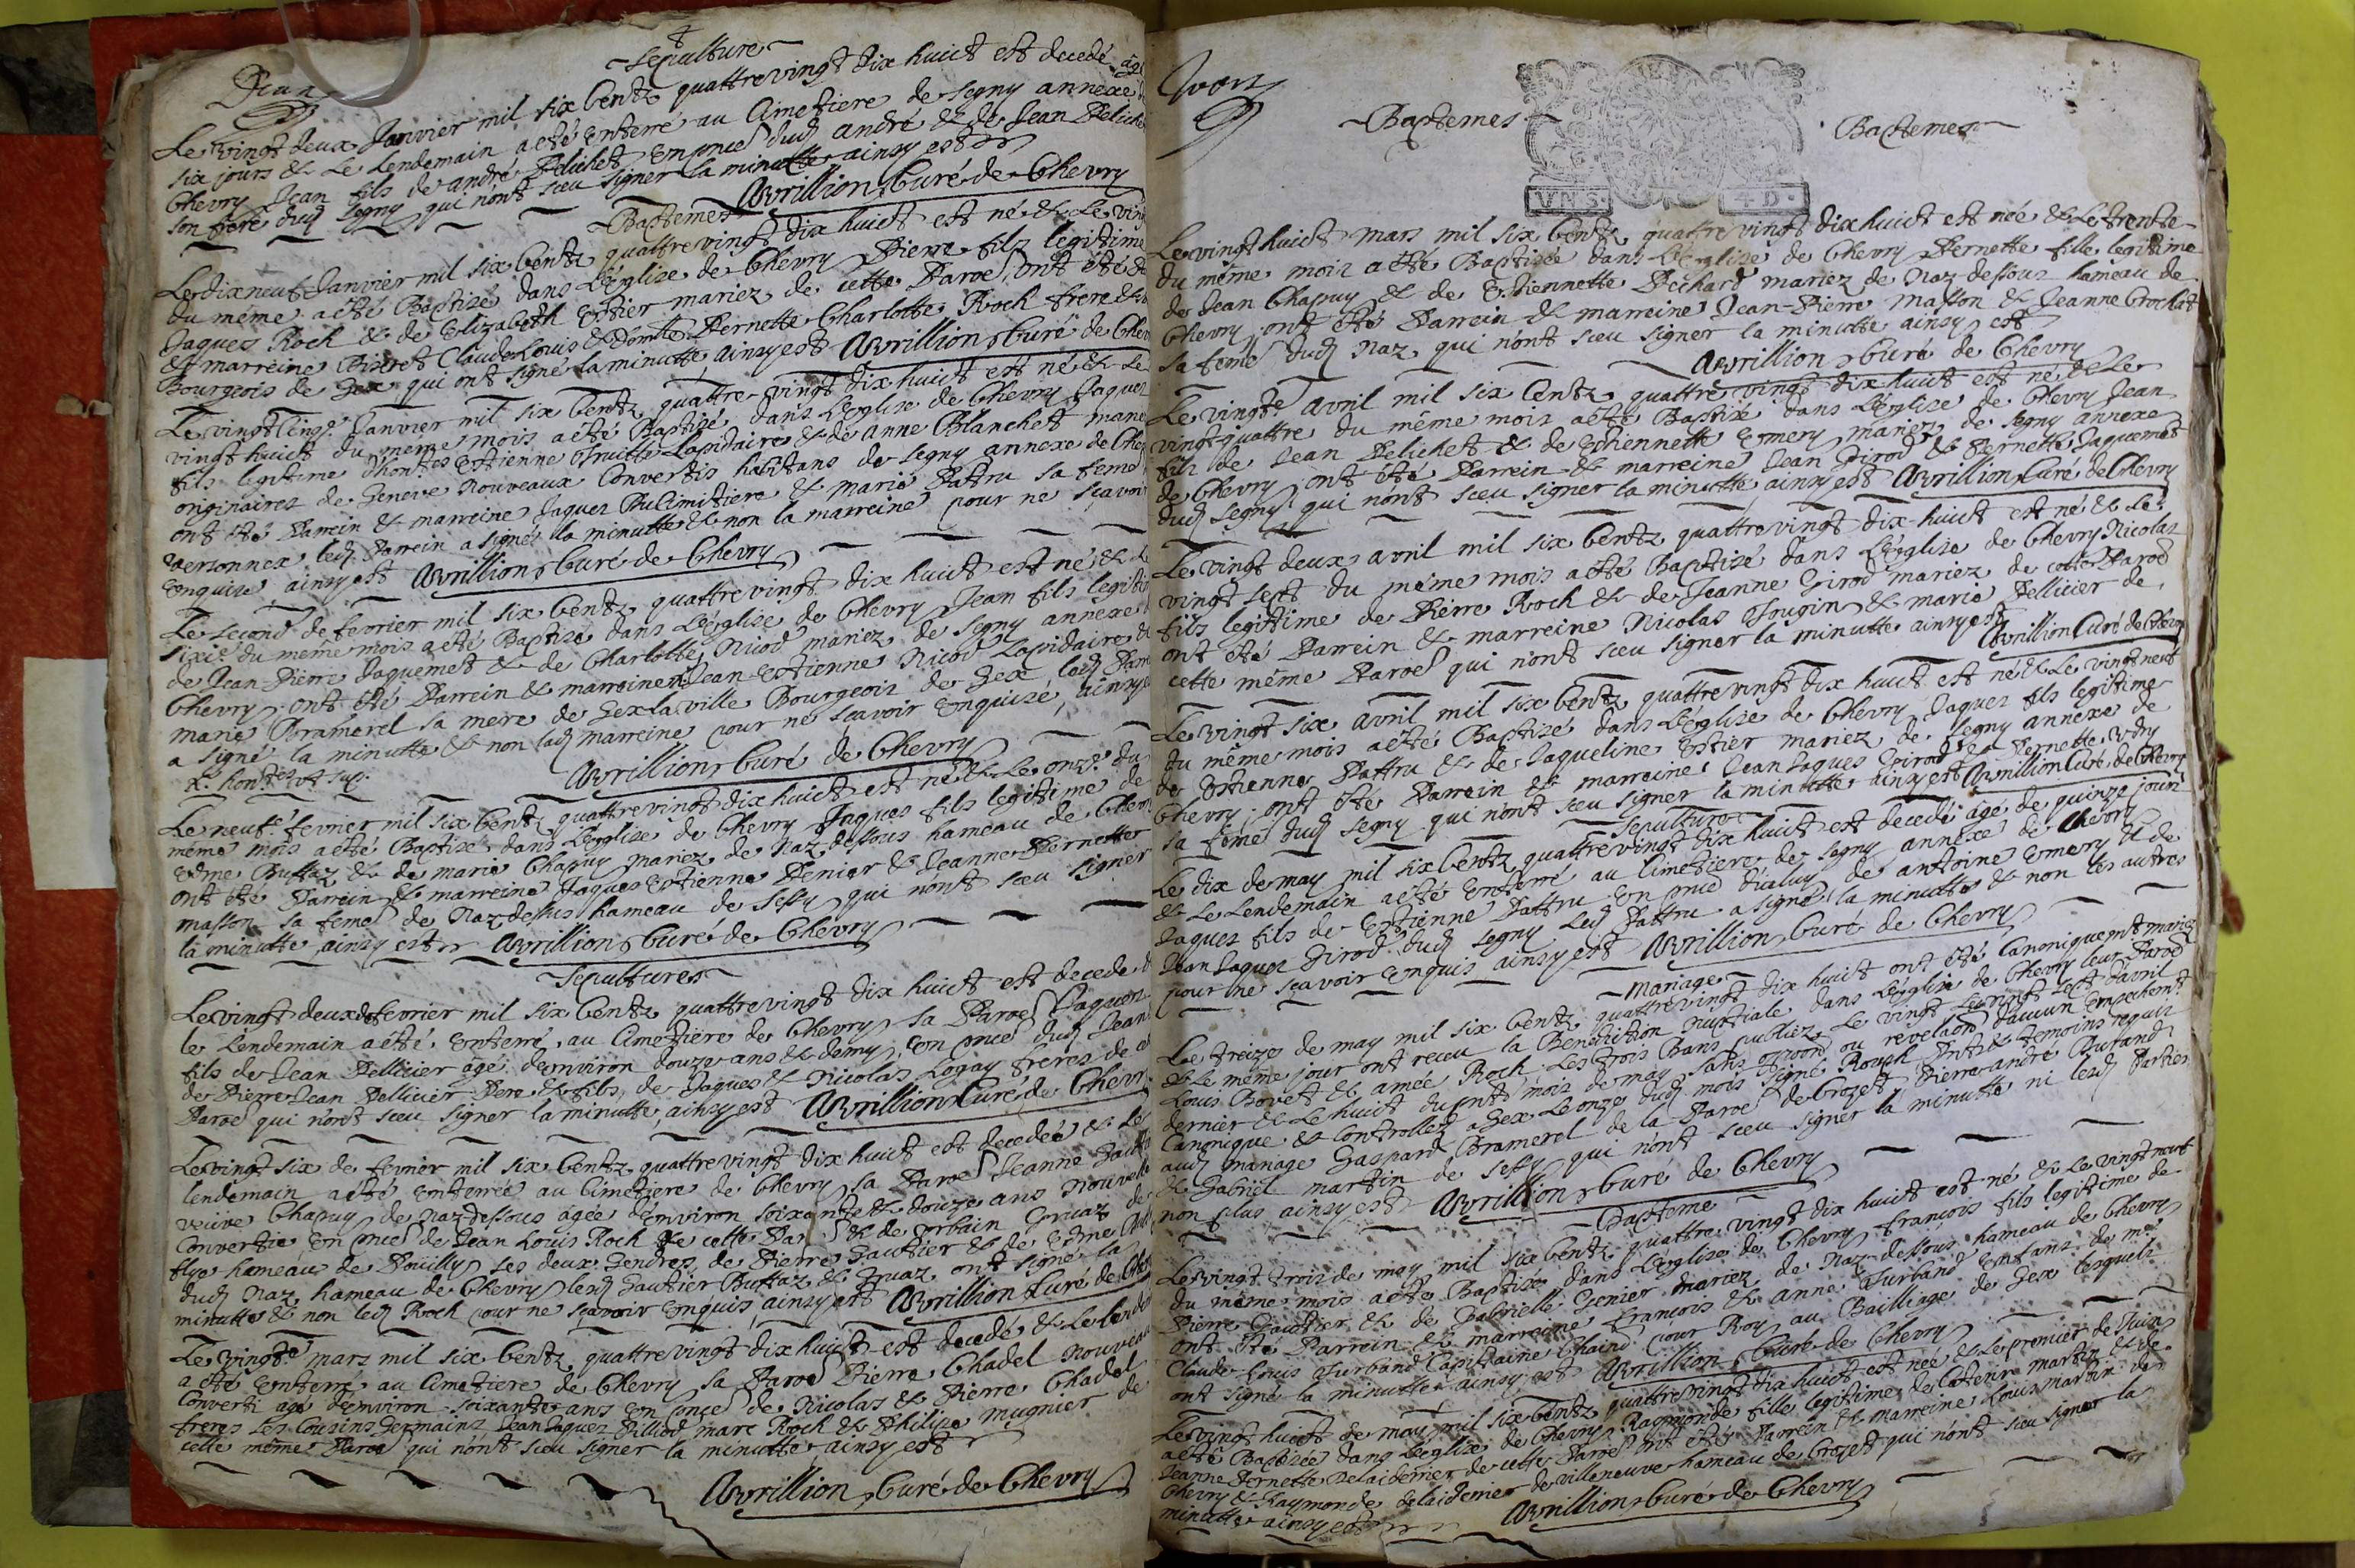 Sepulture
Le vingt deux Janvier mil six Centz quattrevingt dix huict est decedé agé
six jours & Le Lendemain a eté Enterré au Cimetiere de Segny annexe de
Chevry Jean fils de andré Pelichet En pnce dud andré & de Jean Peliche
son frere dud Segny qui n'ont sceu signer la minutte ainsy est
Avrillion Curé de Chevry
Baptemes
Le dixneuf Janvier mil six Centz quattrevingt dix huict est né & Le vingt
du même a eté Baptizé dans L'église de Chevry Pierre fils legitime
Jaques Roch & de Elizabeth Estier mariez de cette Paroe, ont été
& marreine Discret Claude Louis & Dom.lle Pernette Charlotte Roch frere &
Bourgeois de Gex qui ont signé la minutte, ainsy est Avrillion Curé de Chev
Le vingt Janvier mil six Centz quattre vingt dix huict est né & Le
vingt huict du même mois a été Baptizé dans L'église de Chevry Jaques
fils legitime d'hontes Estienne Lapidaire & de anne Blanchet mariez
originaires de Geneve nouveaux Convertis habitans de Segny annexe de Chev
ont été Parrein & marreine Jaques Ducimitiere & marie Pattru sa feme
led Parrein a signé la minutte & non la marreine pour ne sçavoir
Enquise, ainsy est Avrillion Curé de Chevry
Le second de fevrier mil six Centz quattrevingt dix huict est né & Le
sixie. du même mois a eté Baptizé dans L'église de Chevry Jean fils legiti
de Jean Pierre Jaquemet & de Charlotte Nicod mariez de Segny annexe
Chevry, ont été Parrein & marreine Jean Estienne Nicod Lapidaire &
marie Bramerel sa mere de Gex la ville Bourgeois de Gex led Parr
a signé la minutte & non lad marreine pour ne sçavoir Enquise, ainsy e
Avrillion Curé de Chevry
Le neuf.e fevrier mil six Centz quattrevingt dix huict est né & Le onze.e du
même mois a eté Baptizé dans L'église de Chevry Jaques fils legitime de
Edme Buffaz & de marie Chapuy mariez de Naz dessous hameau de Chevr
ont été Parrein & marreine Jaques Estienne Penier & Jeanne Pernette
masson sa feme de Naz dessus hameau de Sessy qui n'ont sceu signer
la minutte ainsy est Avrillion Curé de Chevry
Sepultures
Le vingt deux de fevrier mil six Centz quattrevingt dix huict est decedé &
le Lendemain a eté Enterré au Cimetiere de Chevry sa Paroe Jaques
fils de Jean Pellicier agé d'environ douze ans & demy, En pnce dud Jean
de Pierre Jean Pellicier Pere & fils, de Jaques & Nicolas Logay freres de ce
Paroe qui n'ont sceu signer la minutte, ainsy est Avrillion Curé de Chevr
Le vingt six de fevrier mil six Centz quattrevingt dix huict est decedée & Le
lendemain a été Enterrée au Cimetiere de Chevry sa Paroe Jeanne
veuve Chapuy de Naz dessous agée d'environ soixante & douze ans nouvelle
Convertie en pnce de Jean Louis Roch de cette Par & de Urbain Gruaz de
flye hameau de Pouilly ses deux Gendres, de Pierre Gautier & de Edme
dud Naz hameau de Chevry lesd Gautier Buffaz & Gruaz ont signé la
minutte & non led Roch pour ne sçavoir Enquis, ainsy est Avrillion Curé de
Le vingt.e mars mil six Centz quattrevingt dix huict est decedé & Le lende
a eté Enterré au Cimetiere de Chevry sa Paroe Pierre Chadel nouveau
Converti agé d'environ soixante ans En pnce de Nicolas & Pierre Chadel
freres ses Cousins Germains Jean Jaques Pilliod marc Roch & Philipe mugnier de
cette même Paroe qui n'ont sceu signer la minutte ainsy est
Avrillion Curé de Chevry
Baptemes Baptemes
VN S. 4 D.
Le vingt huict mars mil six Centz quattre vingt dix huict est née & Le trente
du même mois a été Baptizée dans L'église de Chevry Pernette fille legitime
de Jean Chapuy & de Estiennette Pechard mariez de Naz dessous hameau de
Chevry ont été Parrein & marreine Jean-Pierre Masson & Jeanne Crochat
sa feme dud Naz qui n'ont sceu signer la minutte ainsy est
Avrillion Curé de Chevry
Le vingt.e avril mil six Centz quattre vingt dix huict est né & Le
vingt quattre du même mois a été Baptizé dans L'église de Chevry Jean
fils de Jean Pelichet & de Ethiennette Emery mariez de Segny annexe
de Chevry ont été Parrein & marreine Jean Girod & Pernette Jaquemet
dud Segny qui n'ont sceu signer la minutte, ainsy est Avrillion Curé de Chevry
Le vingt deux avril mil six Centz quattrevingt dix huict est né & Le
vingt sept du même mois a été Baptizé dans L'église de Chevry Nicolas
fils legitime de Pierre Roch & de Jeanne Girod mariez de cette Paroe
ont été Parrein & marreine Nicolas Fougin & marie Pellicier de
cette même Paroe qui n'ont sceu signer la minutte ainsy est Avrillion Curé de Chevry
Le vingt six avril mil six Centz quattrevingt dix huict est né & Le vingt neuf
du même mois a été Baptizé dans L'église de Chevry Jaques fils legitime
de Etienne Pattru & de Jaqueline Estier mariez de Segny annexe de
Chevry, ont été Parrein & marreine Jean Jaques Girod & Pernette Vdry
sa feme dud Segny qui n'ont sceu signer la minutte ainsy est Avrillion Curé de Chevry
Sepulture
Le dix de may mil six Centz quattrevingt dix huict est decedé agé de quinze jours
& Le Lendemain a été Enterré au Cimetiere de Segny annexe de Chevry
Jaques fils de Estienne Pattru En pnce d'iceluy de antoine Emery & de
Jean Jaques Girod dud Segny Led Pattru a signé la minutte & non les autres
pour ne sçavoir Enquis ainsy est Avrillion Curé de Chevry
Mariage
Le treize de may mil six Centz quattrevingt dix huict ont été Canoniquemt mariez
& Le même jour ont receu la Benediction nuptiale dans L'église de Chevry leur Paroe
Louis Bovet & amée Roch Les trois Bans publiez Le vingt Le vingt sept d'avril
dernier & Le huict du pnt mois de may sans oppoon ou revelaon d'aucun Empechemt
Canonique & Controllez a Gex Le onze dud mois Signé Rouph Pnts & temoins requis
aud mariage Gaspard Bramerel de la Paroe de Crozet Pierre andré Dufand
& Gabriel martin de Sessy qui n'ont sceu signer la minutte ni lesd Parties
non plus ainsy est Avrillion Curé de Chevry
Bapteme
Le vingt trois de may mil six Centz quattre vingt dix huict est né & Le vingt neuf
du même mois a été Baptizé dans L'église de Chevry francois fils legitime de
Pierre Gauthier & de Gabrielle Grenier mariez de Naz dessous hameau de Chevry
ont été Parrein & marreine francois & anne Furband Enfans de m.e
Claude Louis Furband Capitaine Chatnd pour Roy au Bailliage de Gex lesquels
ont signé la minutte ainsy est Avrillion Curé de Chevry
Le vingt huict de may mil six Centz quattrevingt dix huict est née & Le premier de Juin
a eté Baptizée dans L'église de Chevry Raymonde fille legitime de martin & de
Jeanne Pernette Delaidernier de cette Paroe ont été Parrein & marreine Louis martin de
Chevry & Raymonde delaidernier de villeneuve hameau de Crozet qui n'ont sceu signer la
minutte ainsy est Avrillion Curé de Chevry